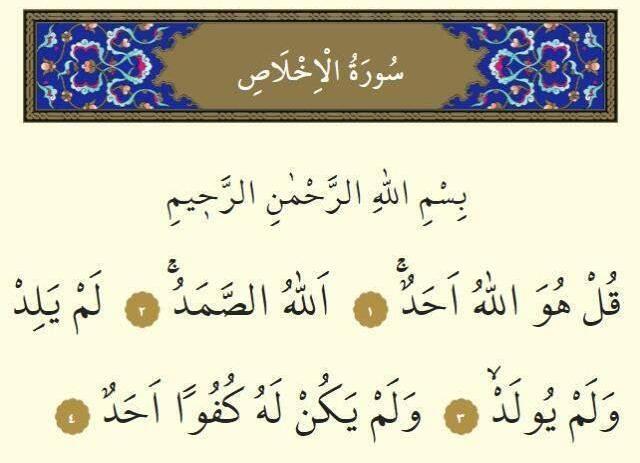 سُورَةُ الْاِخْلَاصِ
بِسْمِ اللّٰهِ الرَّحْمٰنِ الرَّح۪يمِ
قُلْ هُوَ اللّٰهُ اَحَدٌۚ ١ اَللّٰهُ الصَّمَدُۚ ٢ لَمْ يَلِدْ
وَلَمْ يُولَدْۙ ٣ وَلَمْ يَكُنْ لَهُ كُفُوًا اَحَدٌ ٤